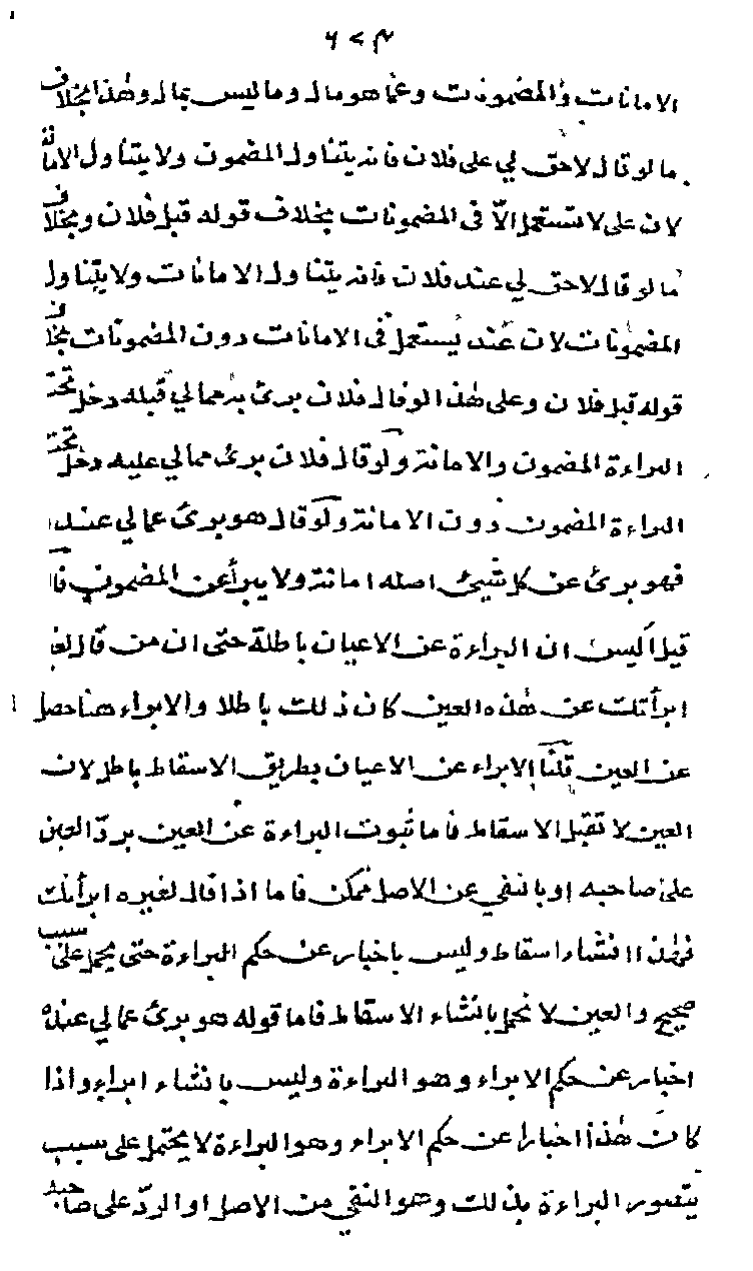 الامانات والمضمونات وعما هو مال وما ليس بمال وهذا بخلاف
ما لو قال لاحق لي على فلان فانه يتناول المضمون ولا يتناول الامانة
لان على لا تستعمل الّا في المضمونات بخلاف قوله قبل فلان وبخلاف
ما لو قال لاحق لي عند فلان فانه يتناول الامانات ولا يتناول
المضمونات لان عند يستعمل في الامانات دون المضمونات بخلاف
قوله قبل فلان وعلى هذا لو قال فلان برئ مما لي قبله دخل تحت
البراءة المضمون والامانة ولو قال فلان برئ مما لي عليه دخل تحت
البراءة المضمون دون الامانة ولو قال هو برئ عما لي عنده
فهو برئ عن كل شيئ اصله امانة ولا يبرأ عن المضمون فان
قيل أليس ان البراءة عن الاعيان باطلة حتى ان من قال لغيره
ابرأتك عن هذه العين كان ذلك باطلا والابراء هنا حصل
عن العين قلنا الابراء عن الاعيان بطريق الاسقاط باطل لان
العين لا تقبل الاسقاط فاما ثبوت البراءة عن العين بردّ العين
على صاحبه او بانفي عن الاصل ممكن فاما اذا قال لغيره ابرأتك
فهذا انشاء اسقاط وليس باخبار عن حكم البراءة حتى يحمل على سبب
صحيح والعين لا تحمل بانشاء الاسقاط فاما قوله هو برئ عما لي عنده
اخبار عن حكم الابراء وهو البراءة وليس بانشاء ابراء واذا
كان هذا اخبارا عن حكم الابراء وهو البراءة لا يحتمل على سبب
يتصور البراءة بذلك وهو النفي من الاصل او الردّ على صاحبه